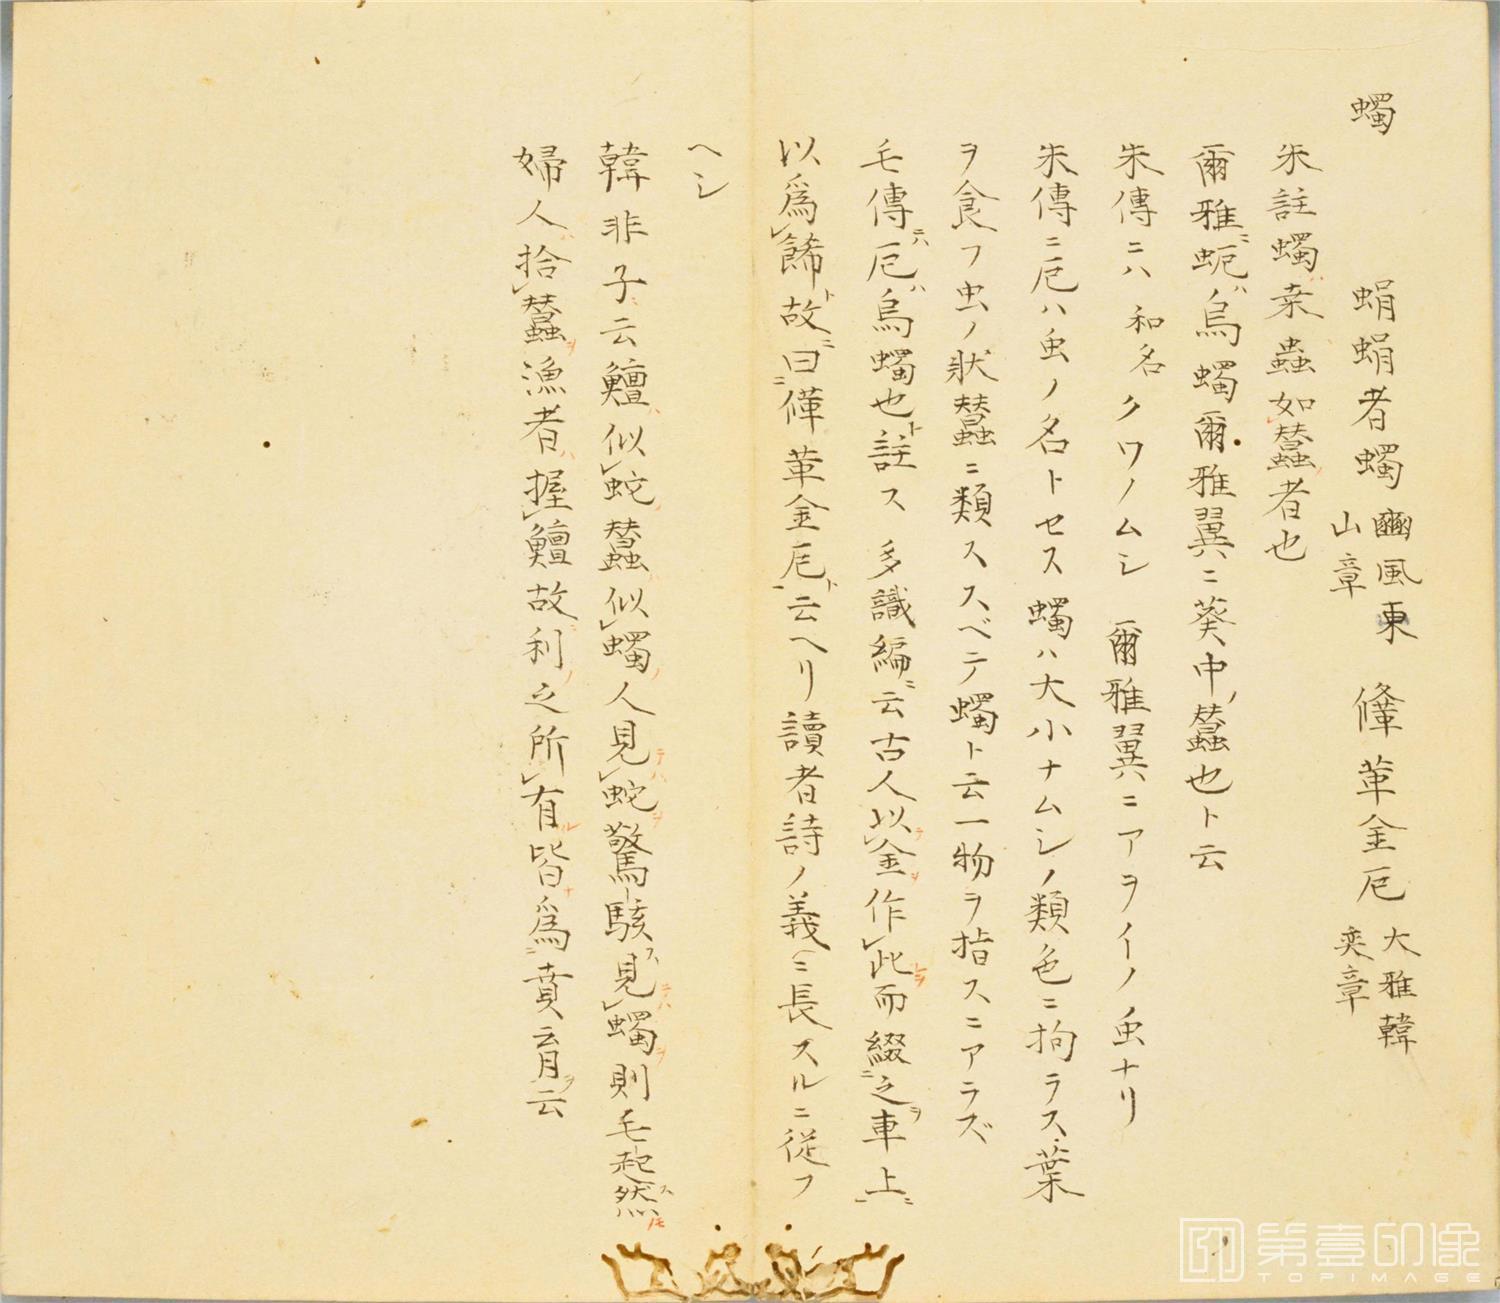 蠋　蜎蜎者蠋 豳風東山章　鞗革金厄 大雅韓奕章
朱註蠋桒蟲如蠶者也
爾雅蚅烏蠋爾雅翼ニ葵中ノ蠶也ト云
朱傳ニハ和名クワノムシ　爾雅翼ニアヲイノ虫ナリ
朱傳ニ厄ハ虫ノ名トセス蠋ハ大小ナムシノ類色ニ拘ラス葉
ヲ食フ虫ノ狀蠶ニ類ススベテ蠋ト云一物ヲ指スニアラズ
毛傳ニハ厄ハ烏蠋也ト註ス　多識編ニ云古人以金作此而綴之車上
以爲餙故曰鞗革金厄ト云ヘリ讀者詩ノ義ニ長スルニ従フ
ヘシ
韓非子云鱣似蛇蠶似蠋人見蛇驚駭見蠋則毛起然
婦人拾蠶漁者握鱣故利之所有皆爲賁育云
第壹印像
TOPIMAGE